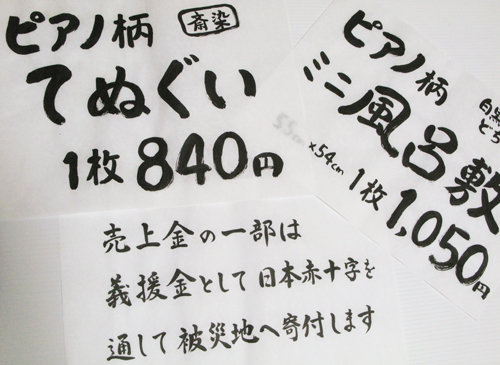 ピアノ柄
斎染
てぬぐい
1枚840円
ピアノ柄
ミニ風呂敷
55cm
×54cm
1枚1,050円
売上金の一部は
義援金として日本赤十字を
通して被災地へ寄付します